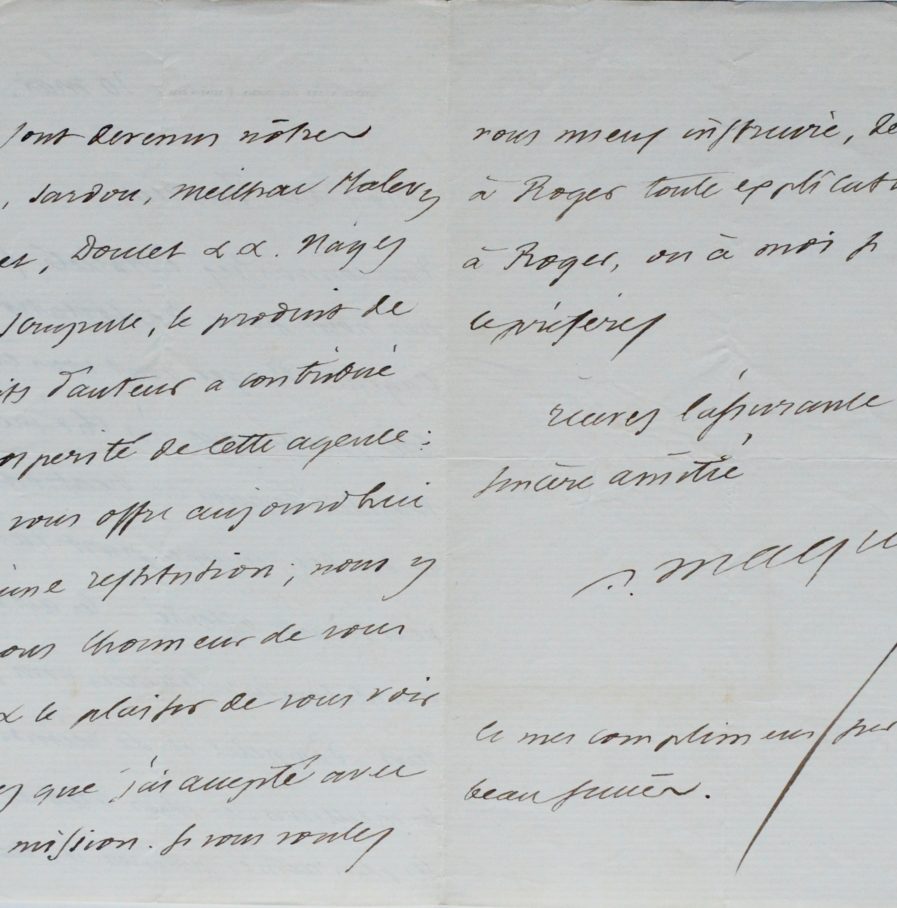 sont devenus nôtres
, Sardou, Meilhac Halévy
et, Doucet && . N'ayez
scrupule, le produit de
its d'auteur a contribué
osperité de cette agence :
vous offre aujourd'hui
'une restitution ; nous y
ons l'honneur de vous
& le plaisir de vous voir
ez que j'ai accepté avec
mission. Si vous voulez
vous mieux instruire, de
à Roger toute explicat
à Roger, ou à moi si
le préférez
recevez l'assurance
sincère amitié
Maqu
le mes complimens pour
beau succès.